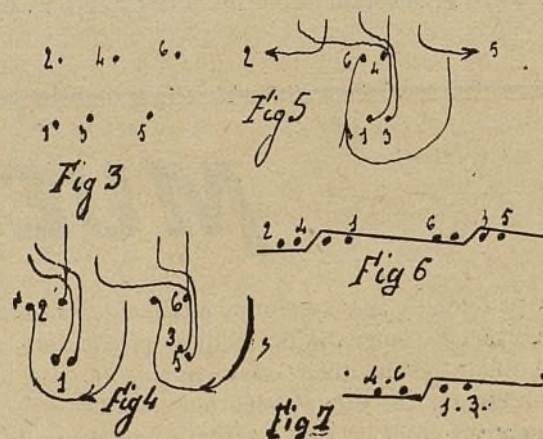 2. 4. 6.
1 3 5
Fig 3
2 5
6 4
1 3
Fig 5
2 4 1 6 5
Fig 6
2 6
3
1 5
Fig 4
4. 6.
1. 3.
Fig 7